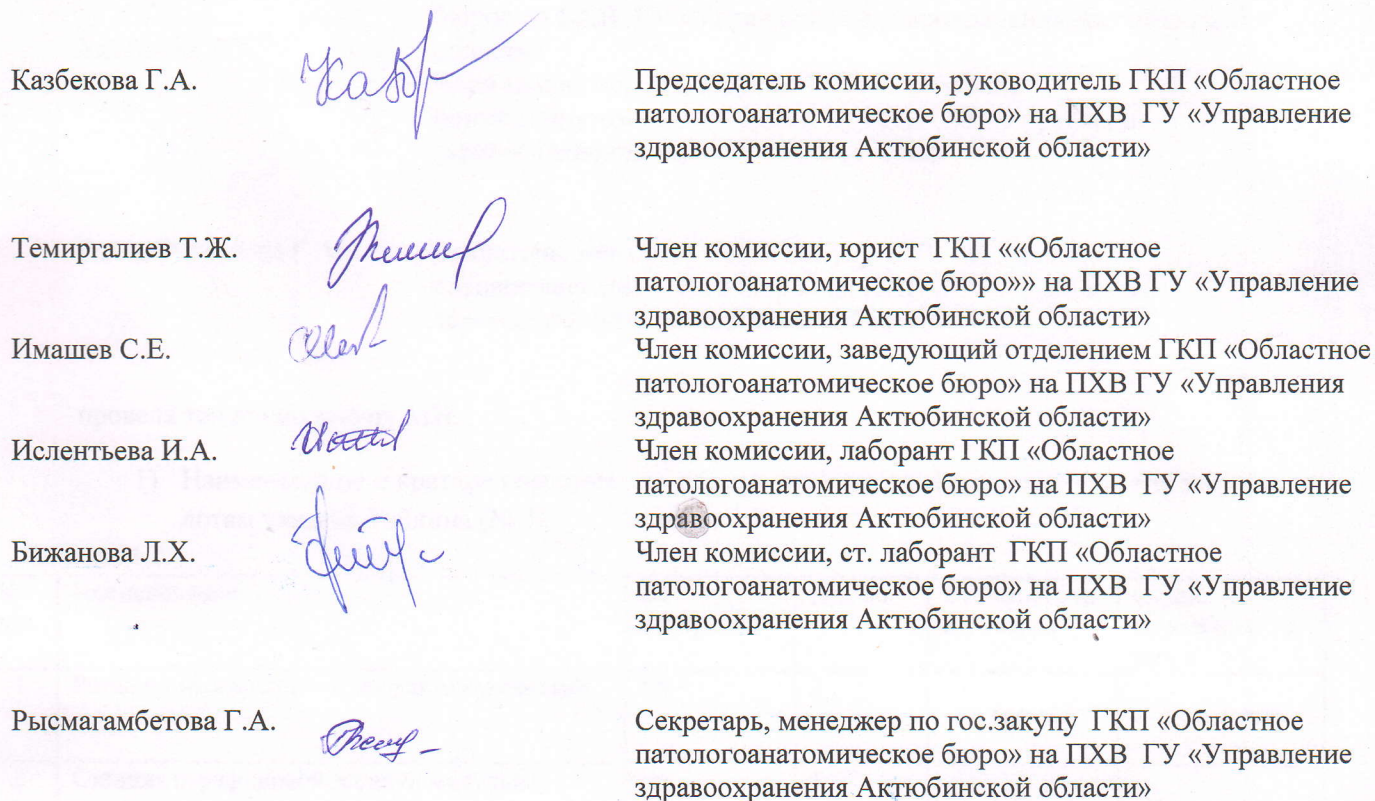 Казбекова Г.А. Председатель комиссии, руководитель ГКП «Областное
патологоанатомическое бюро» на ПХВ ГУ «Управление
здравоохранения Актюбинской области»
Темиргалиев Т.Ж. Член комиссии, юрист ГКП ««Областное
патологоанатомическое бюро»» на ПХВ ГУ «Управление
здравоохранения Актюбинской области»
Имашев С.Е. Член комиссии, заведующий отделением ГКП «Областное
патологоанатомическое бюро» на ПХВ ГУ «Управления
здравоохранения Актюбинской области»
Ислентьева И.А. Член комиссии, лаборант ГКП «Областное
патологоанатомическое бюро» на ПХВ ГУ «Управление
здравоохранения Актюбинской области»
Бижанова Л.Х. Член комиссии, ст. лаборант ГКП «Областное
патологоанатомическое бюро» на ПХВ ГУ «Управление
здравоохранения Актюбинской области»
Рысмагамбетова Г.А. Секретарь, менеджер по гос.закупу ГКП «Областное
патологоанатомическое бюро» на ПХВ ГУ «Управление
здравоохранения Актюбинской области»